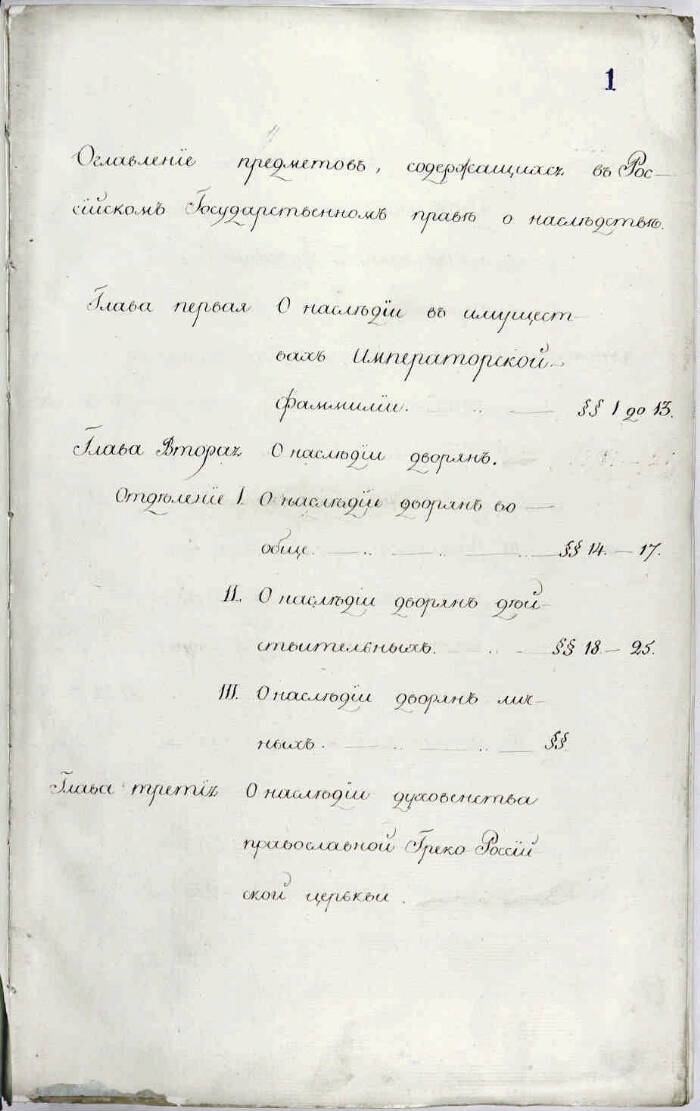 1
Оглавленїе предметовъ, содержащихся въ Рос-
сїйскомъ Государственномъ правѣ о наслѣдствѣ.
Глава первая О наслѣдїи въ имущест-
вахъ Императорской
фаммилїи. §§ 1 до 13.
Глава Вторая О наслѣдїи дворянъ.
Отдѣленїе I. О наслѣдїи дворянъ во
обще. §§ 14. — 17.
II. О наслѣдїи дворянъ дѣй-
ствительныхъ. §§ 18 — 25.
III. О наслѣдїи дворянъ лич-
ныхъ. §§
Глава третїя О наслѣдїи духовенства
православной Греко Россїй
ской церькви.